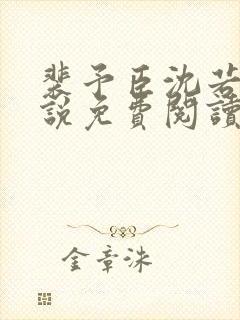 裴予臣沈若
說免費閱讀
金章洙